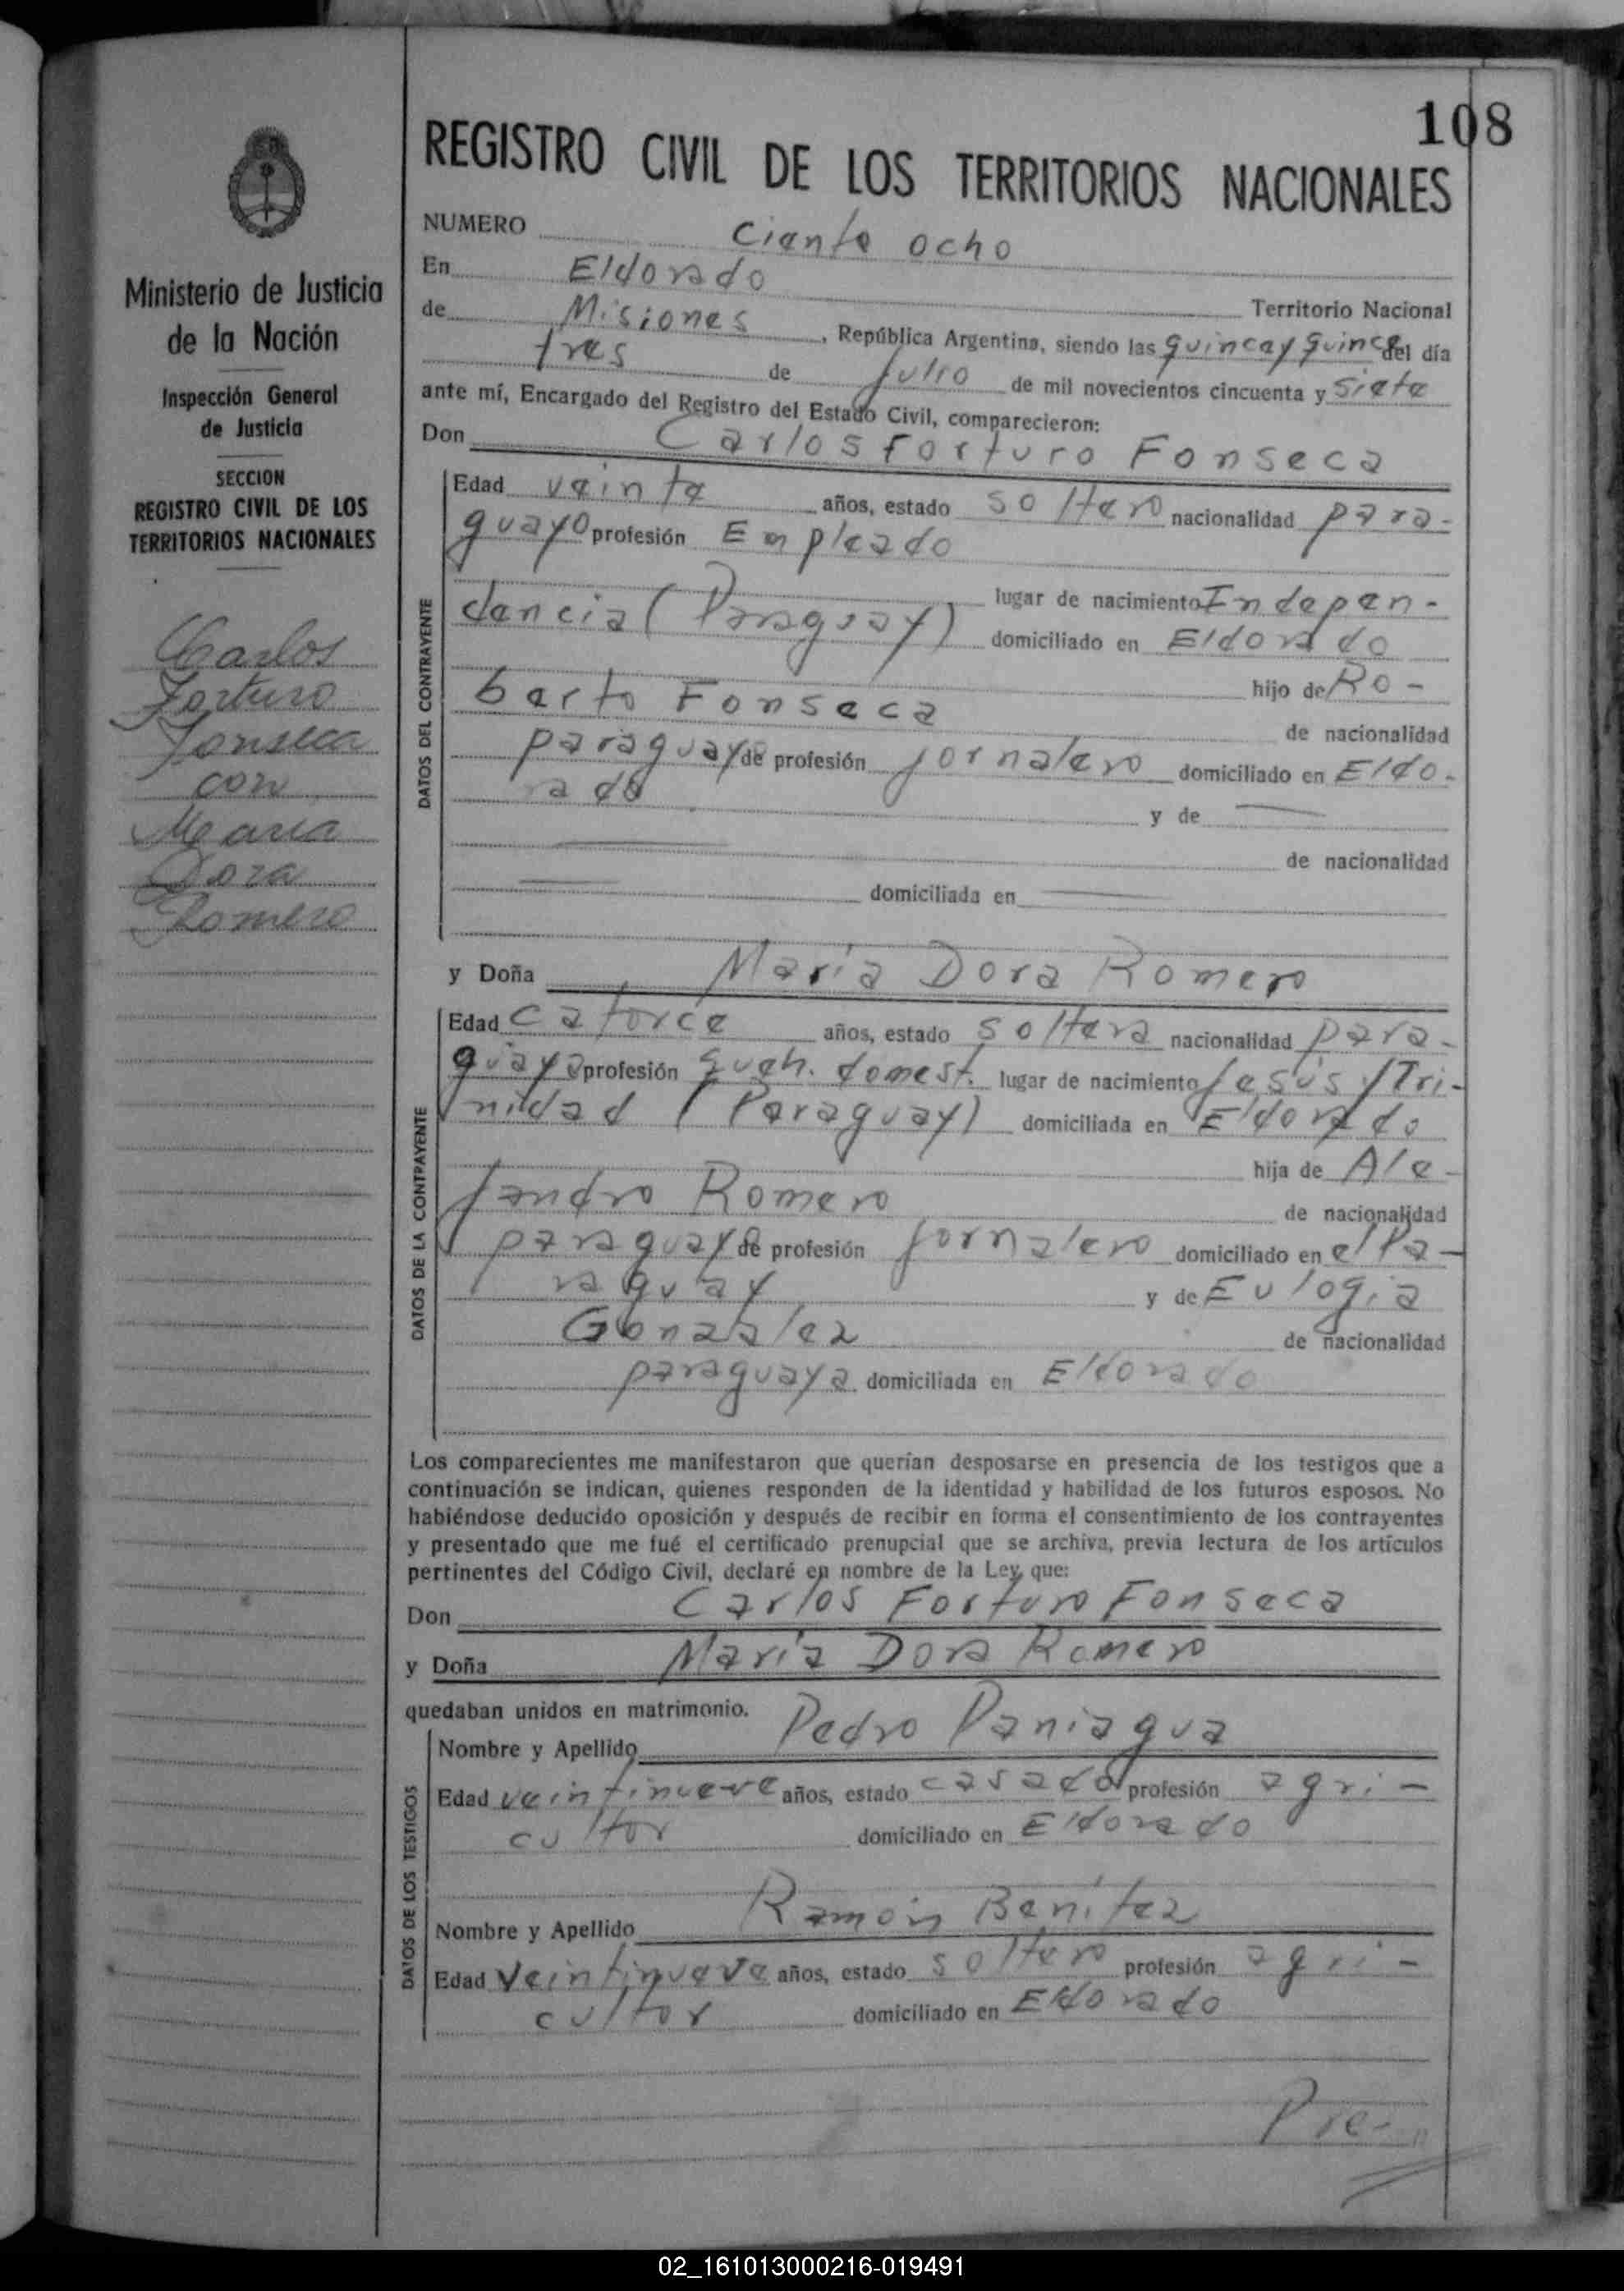 108
REGISTRO CIVIL DE LOS TERRITORIOS NACIONALES
Ministerio de Justicia
de la Nación
Inspección General
de Justicia
SECCION
REGISTRO CIVIL DE LOS
TERRITORIOS NACIONALES
Carlos
Forturo
Fonseca
con
Maria
Dora
Romero
NUMERO ciento ocho
En Eldorado
de Misiones Territorio Nacional
, República Argentina, siendo las quince y quince del día
tres de julio de mil novecientos cincuenta y siete
ante mí, Encargado del Registro del Estado Civil, comparecieron:
Don Carlos Forturo Fonseca
DATOS DEL CONTRAYENTE
Edad veinte años, estado soltero nacionalidad para-
guayo profesión Empleado
lugar de nacimiento Indepen-
dencia (Paraguay) domiciliado en Eldorado
hijo de Ro-
berto Fonseca de nacionalidad
paraguayo de profesión jornalero domiciliado en Eldo-
rado y de
de nacionalidad
domiciliada en
y Doña María Dora Romero
DATOS DE LA CONTRAYENTE
Edad catorce años, estado soltera nacionalidad para-
guaya profesión queh. domest. lugar de nacimiento Jesús y Tri-
nidad (Paraguay) domiciliada en Eldorado
hija de Ale-
jandro Romero de nacionalidad
paraguayo de profesión jornalero domiciliado en el Pa-
raguay y de Eulogia
Gonzalez de nacionalidad
paraguaya domiciliada en Eldorado
Los comparecientes me manifestaron que querían desposarse en presencia de los testigos que a
continuación se indican, quienes responden de la identidad y habilidad de los futuros esposos. No
habiéndose deducido oposición y después de recibir en forma el consentimiento de los contrayentes
y presentado que me fué el certificado prenupcial que se archiva, previa lectura de los artículos
pertinentes del Código Civil, declaré en nombre de la Ley, que:
Don Carlos Forturo Fonseca
y Doña María Dora Romero
quedaban unidos en matrimonio.
DATOS DE LOS TESTIGOS
Nombre y Apellido Pedro Paniagua
Edad veintinueve años, estado casado profesión agri-
cultor domiciliado en Eldorado
Nombre y Apellido Ramón Benítez
Edad veintinueve años, estado soltero profesión agri-
cultor domiciliado en Eldorado
Pre-
02_161013000216-019491